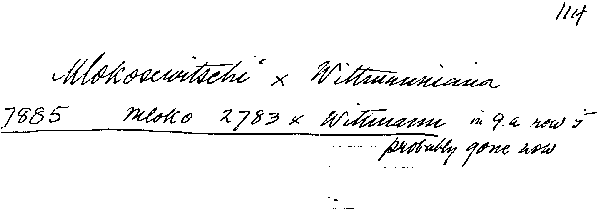 114
Mlokosewitschi × Wittmanniana
7885 Mloko 2783 × Wittmann in g.a row 5
probably gone now